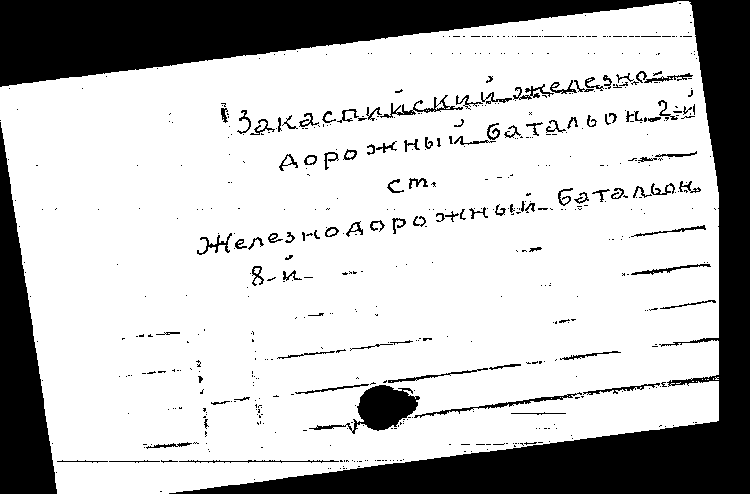 Закаспийский железно-
дорожный батальон 2-й
ст.
Железнодорожный батальон
8-й